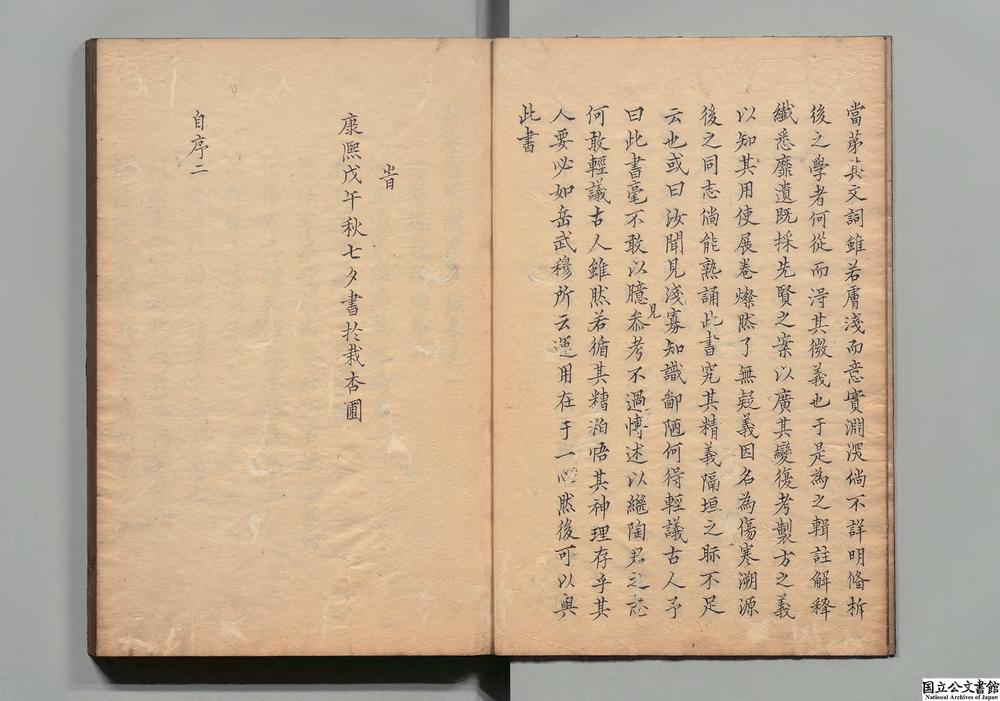 當苐其文詞雖若膚淺而意實淵深倘不詳明條析
後之學者何從而淂其微義也于是為之輯註解釋
纎悉靡遺既採先賢之案以廣其變復考製方之義
以知其用使展卷燦然了無疑義因名為傷寒溯源
後之同志倘能熟誦此書究其精義隔垣之眎不足
云也或曰汝聞見淺寡知識鄙陋何得輕議古人予
曰此書毫不敢以臆見叅考不過博述以繼陶君之志
何敢輕議古人雖然若循其糟粕悟其神理存乎其
人要必如岳武穆所云運用在于一心然後可以與
此書
旹
康熙戊午秋七夕書於栽杏圃
自序二
国立公文書館
National Archives of Japan